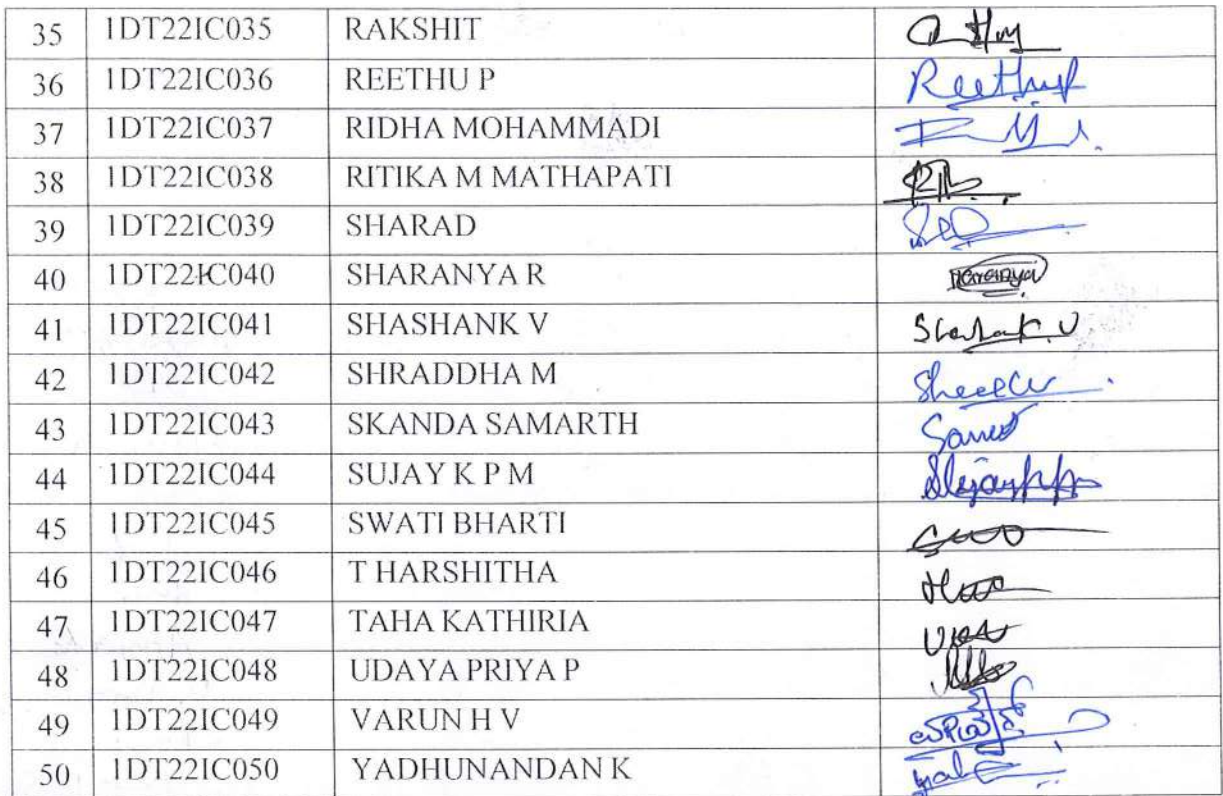 35 1DT22IC035 RAKSHIT
36 1DT22IC036 REETHU P Reethu P
37 1DT22IC037 RIDHA MOHAMMADI
38 1DT22IC038 RITIKA M MATHAPATI
39 1DT22IC039 SHARAD
40 1DT22IC040 SHARANYA R
41 1DT22IC041 SHASHANK V Shashank. V
42 1DT22IC042 SHRADDHA M
43 1DT22IC043 SKANDA SAMARTH
44 1DT22IC044 SUJAY K P M
45 1DT22IC045 SWATI BHARTI
46 1DT22IC046 T HARSHITHA
47 1DT22IC047 TAHA KATHIRIA
48 1DT22IC048 UDAYA PRIYA P
49 1DT22IC049 VARUN H V
50 1DT22IC050 YADHUNANDAN K